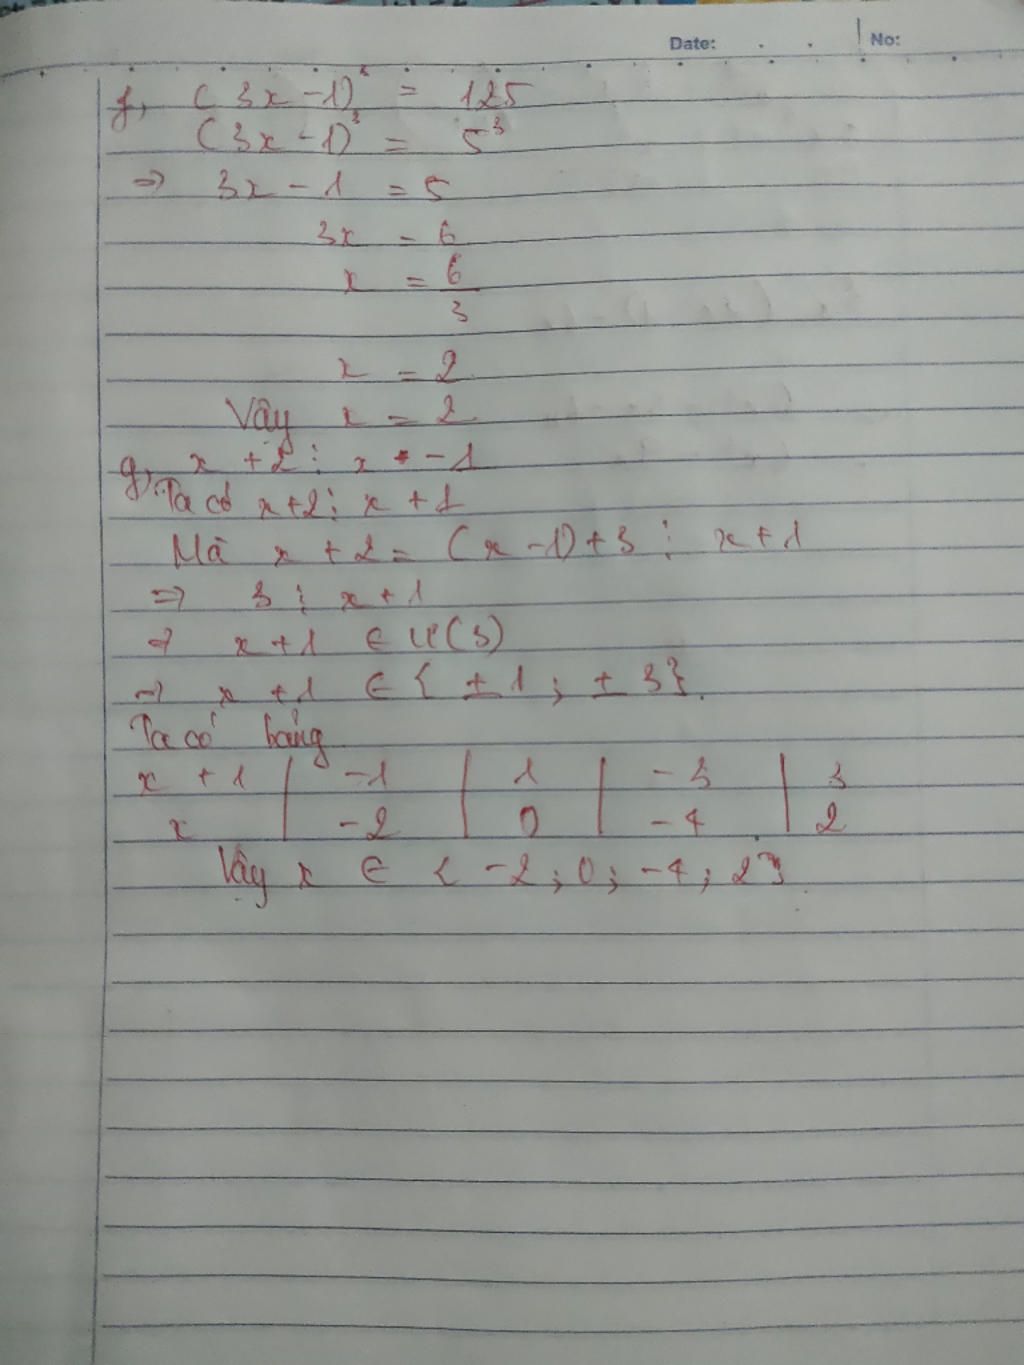 Date: . . No:
f, (3x-1)³ = 125
(3x-1)³ = 5³
=> 3x-1 = 5
3x = 6
x = 6/3
x = 2
Vậy x = 2
g, x+2 ⋮ x -1
Ta có x+2 ⋮ x+1
Mà x+2 = (x-1)+3 ⋮ x+1
=> 3 ⋮ x+1
=> x+1 ∈ Ư(3)
=> x+1 ∈ { ±1 ; ±3}.
Ta có bảng
x+1 | -1 | 1 | -3 | 3
x | -2 | 0 | -4 | 2
Vậy x ∈ { -2 ; 0 ; -4 ; 2}